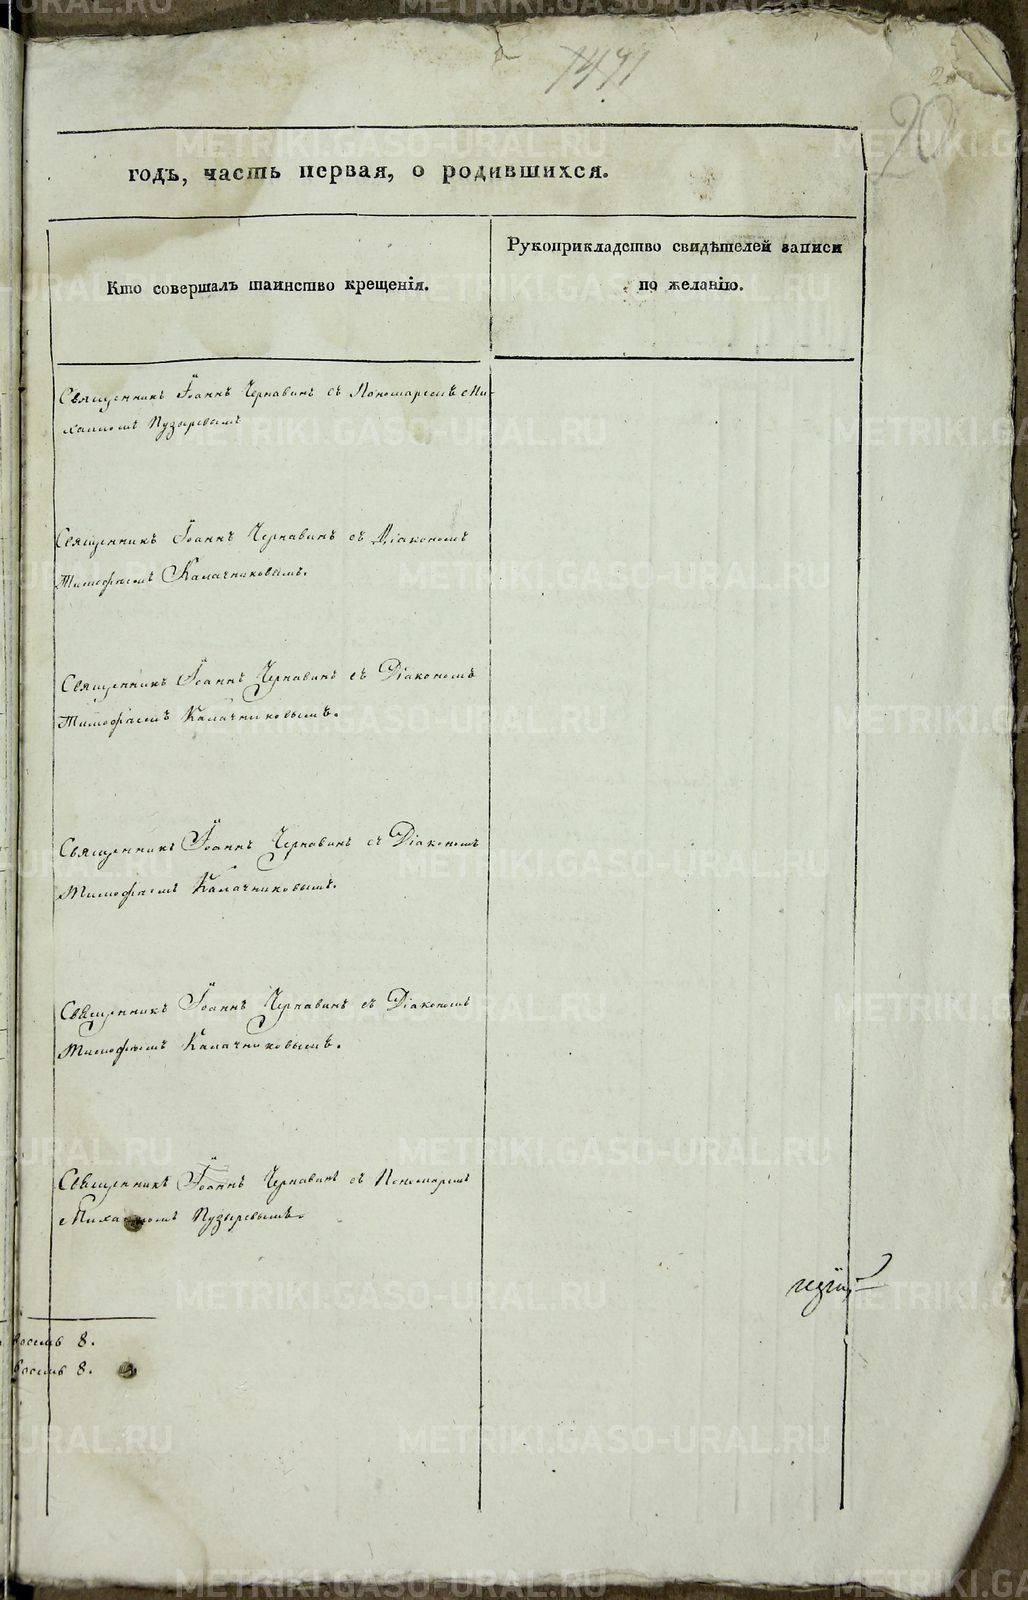 1491
20
годъ, часть первая, о родившихся.
Кто совершалъ таинство крещенія.
Рукоприкладство свидѣтелей записи
по желанію.
Священникъ Іоаннъ Чернавинъ съ Пономаремъ Ми-
хаиломъ Пузыревымъ
Священникъ Іоаннъ Чернавинъ съ Діакономъ
Тимофеемъ Калачниковымъ.
Священникъ Іоаннъ Чернавинъ съ Діакономъ
Тимофеемъ Калачниковымъ.
Священникъ Іоаннъ Чернавинъ съ Діакономъ
Тимофеемъ Калачниковымъ.
Священникъ Іоаннъ Чернавинъ съ Діакономъ
Тимофеемъ Калачниковымъ.
Священникъ Іоаннъ Чернавинъ съ Пономаремъ
Михаиломъ Пузыревымъ.
восемь 8.
восемь 8.
METRIKI.GASO-URAL.RU